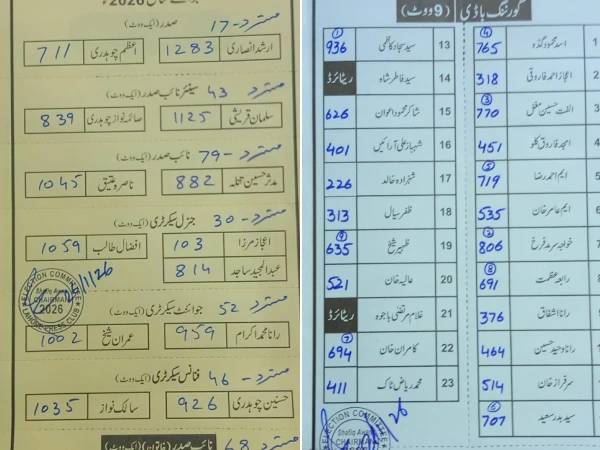 2026
صدر (ایک ووٹ) مسترد - 17
ارشد انصاری 1283 اعظم چوہدری 711
سینئر نائب صدر (ایک ووٹ) مسترد 43
سلمان قریشی 1125 صائمہ نواز چوہدری 839
نائب صدر (ایک ووٹ) مسترد - 79
مدثر حسین 882 ناصرہ عتیق 1045
جنرل سیکرٹری (ایک ووٹ) مسترد - 30
اعجاز مرزا 103 افضال طالب 1059
عبدالمجید ساجد 814
ELECTION COMMITTEE
CHAIRMAN
2026
LAHORE PRESS CLUB
جوائنٹ سیکرٹری (ایک ووٹ) مسترد - 52
رانا محمد اکرام 959 عمران شیخ 1002
فنانس سیکرٹری (ایک ووٹ) مسترد - 46
حسنین چوہدری 926 سالک نواز 1035
نائب صدر (خاتون) (ایک ووٹ) مسترد - 68
گورننگ باڈی (9 ووٹ)
1 اسد محمود گڈو 765 (4)
2 اعجاز احمد فاروقی 318
الفت حسین مغل 770 (3)
4 امجد فاروق کلو 451
5 ایم احمد رضا 719 (5)
ایم عامر خان 535
7 خواجہ سرمد فرخ 806 (2)
8 رابعہ عظمت 691 (8)
رانا اشفاق 376
رانا وحید حسین 464
سرفراز خان 514
سید بدر سعید 707 (6)
13 سید سجاد کاظمی 936 (1)
14 سید فاطر شاہ ریٹائرڈ
15 شاکر محمود اعوان 626
16 شہباز علی آرائیں 401
17 شہزادہ خالد 226
18 ظفر سیال 313
19 ظہیر شیخ 635 (9)
20 عالیہ خان 521
21 غلام مرتضیٰ باجوہ ریٹائرڈ
22 کامران خان 694 (7)
23 محمد ریاض ٹاک 411
ELECTION COMMITTEE
Shafiq Awan
CHAIRMAN